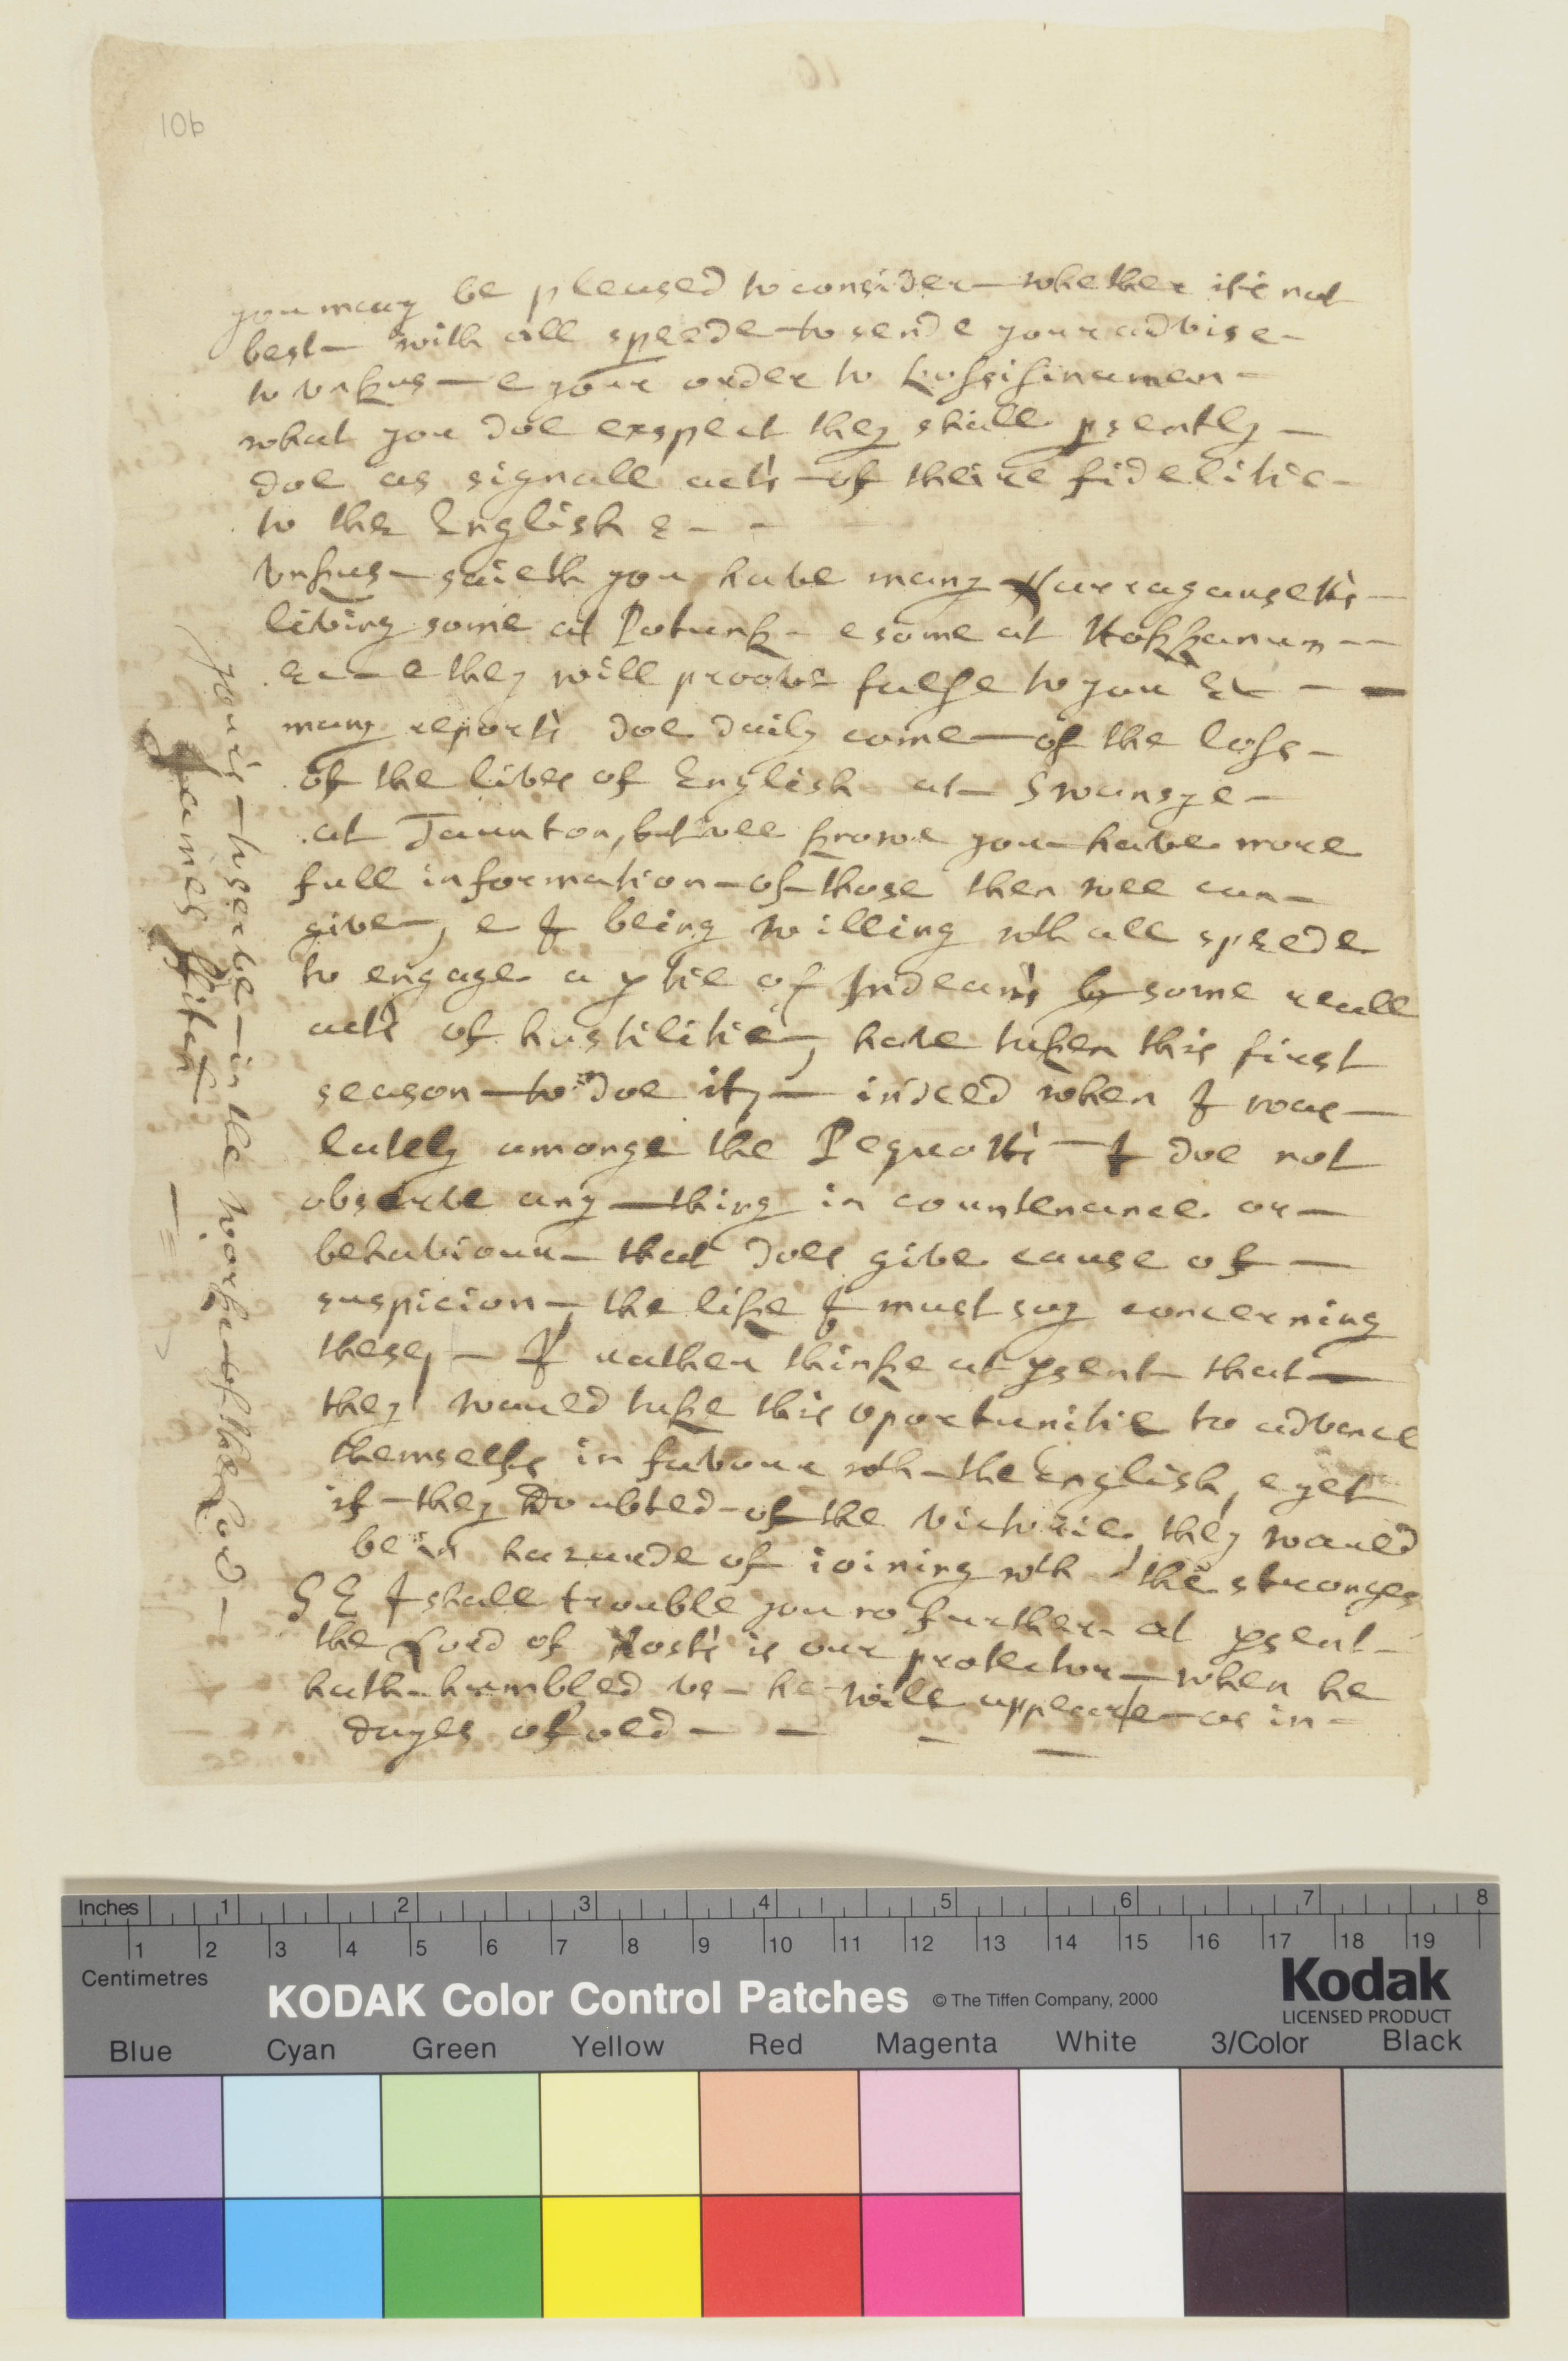 10b
you may be pleased to consider – whether it is not
best – with all speede – to sende your advise –
to Unkus – & your order to Kossisinamon –
what you doe exspect they shall psently –
doe as signall acts – of theire fidelitie –
to the English & – –
Unkus – saieth you have many Narragansetts –
living some at Potunk – & some at Hokkanum – –
& they will proove false to you &c – –
many reports doe daily come – of the losse –
of the lives of English at – Swansye –
at Taunton, but wee knowe you – have more
full information – of – those then wee can –
give –, & I being willing wth all speede
to engage a ptie of Indeans by some reall
acts of hostilitie –, have taken this first
season – to doe it, – indeed when I was –
lately amonge the Pequotts – I doe not
observe any – thing in countenance or –
behaviour – that does give cause of –
suspicion –, the like I must say concerning
these, – I rather thinke at psent – that –
they would take this oportunitie to advance
themselfs in favour wth – the English, & yet
if – they Doubted – of the victorie, they would
be in hazarde of ioining wth the stronges
SE I shall trouble you no further – at psent –
the Lord of Hosts is our protector – when he
hath – humbled us – he will appeare – as in –
dayes of old – –
yours – to serve – in the worke – of the Lord –
James Fitch –
Inches 1 2 3 4 5 6 7 8
1 2 3 4 5 6 7 8 9 10 11 12 13 14 15 16 17 18 19
Centimetres
KODAK Color Control Patches © The Tiffen Company, 2000
Kodak
LICENSED PRODUCT
Blue Cyan Green Yellow Red Magenta White 3/Color Black